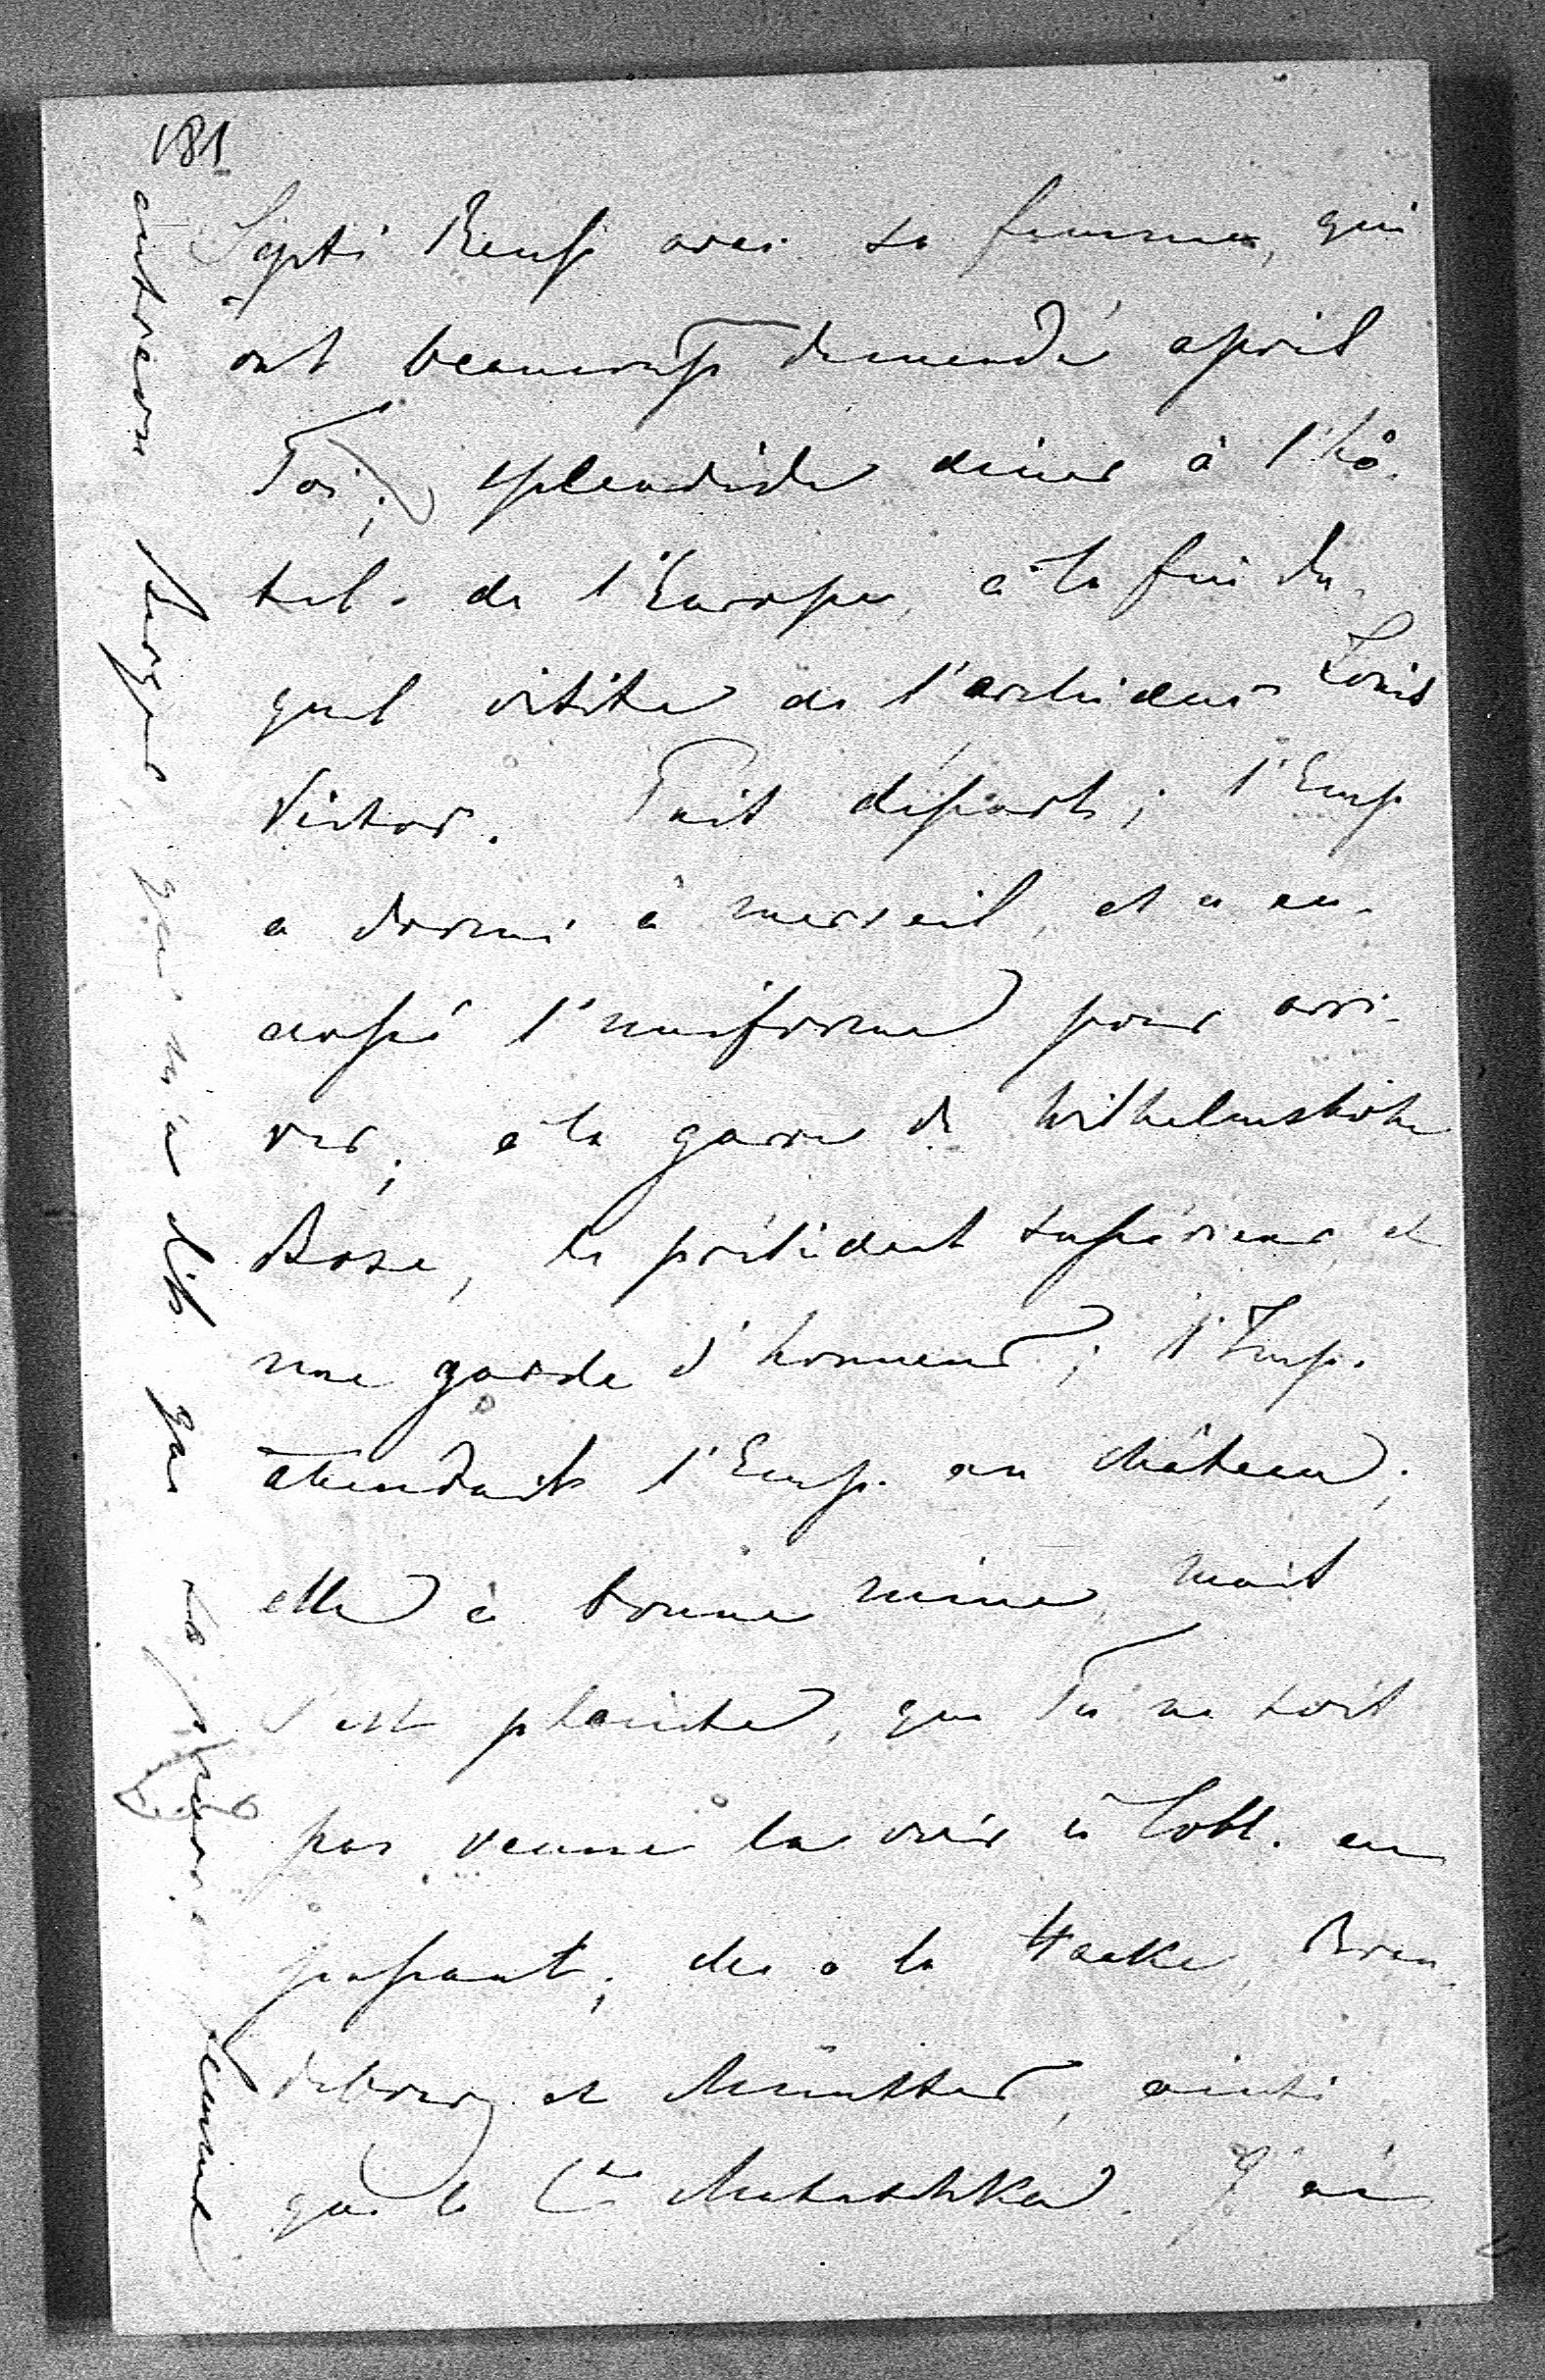 181
Septi Reuss avec sa femme, qui
ont beaucoup demandé après
Toi; splendide diner à l'hô-
tel de l'Europe, à la fin du-
quel visite de l'archiduc Louis
Victor. Puis départ; l'Emp
a dormi à merveil, et a en-
dossé l'uniforme pour arri-
ver; à la garre de Wilhelmshöhe
Bose, le président supérieur, et
une garde d'honneur; l'Imp.
attendait l'Emp. au château;
elle a bonne mine, mais
s'est plainte, que Tu ne sois
pas venue la voir à Cobl. en
passant; elle a la Haeke, Bran-
debourg et Münster, ainsi
que le Cte Matuschka. J'ai
entrevu Perponcher, qui m'a dit que